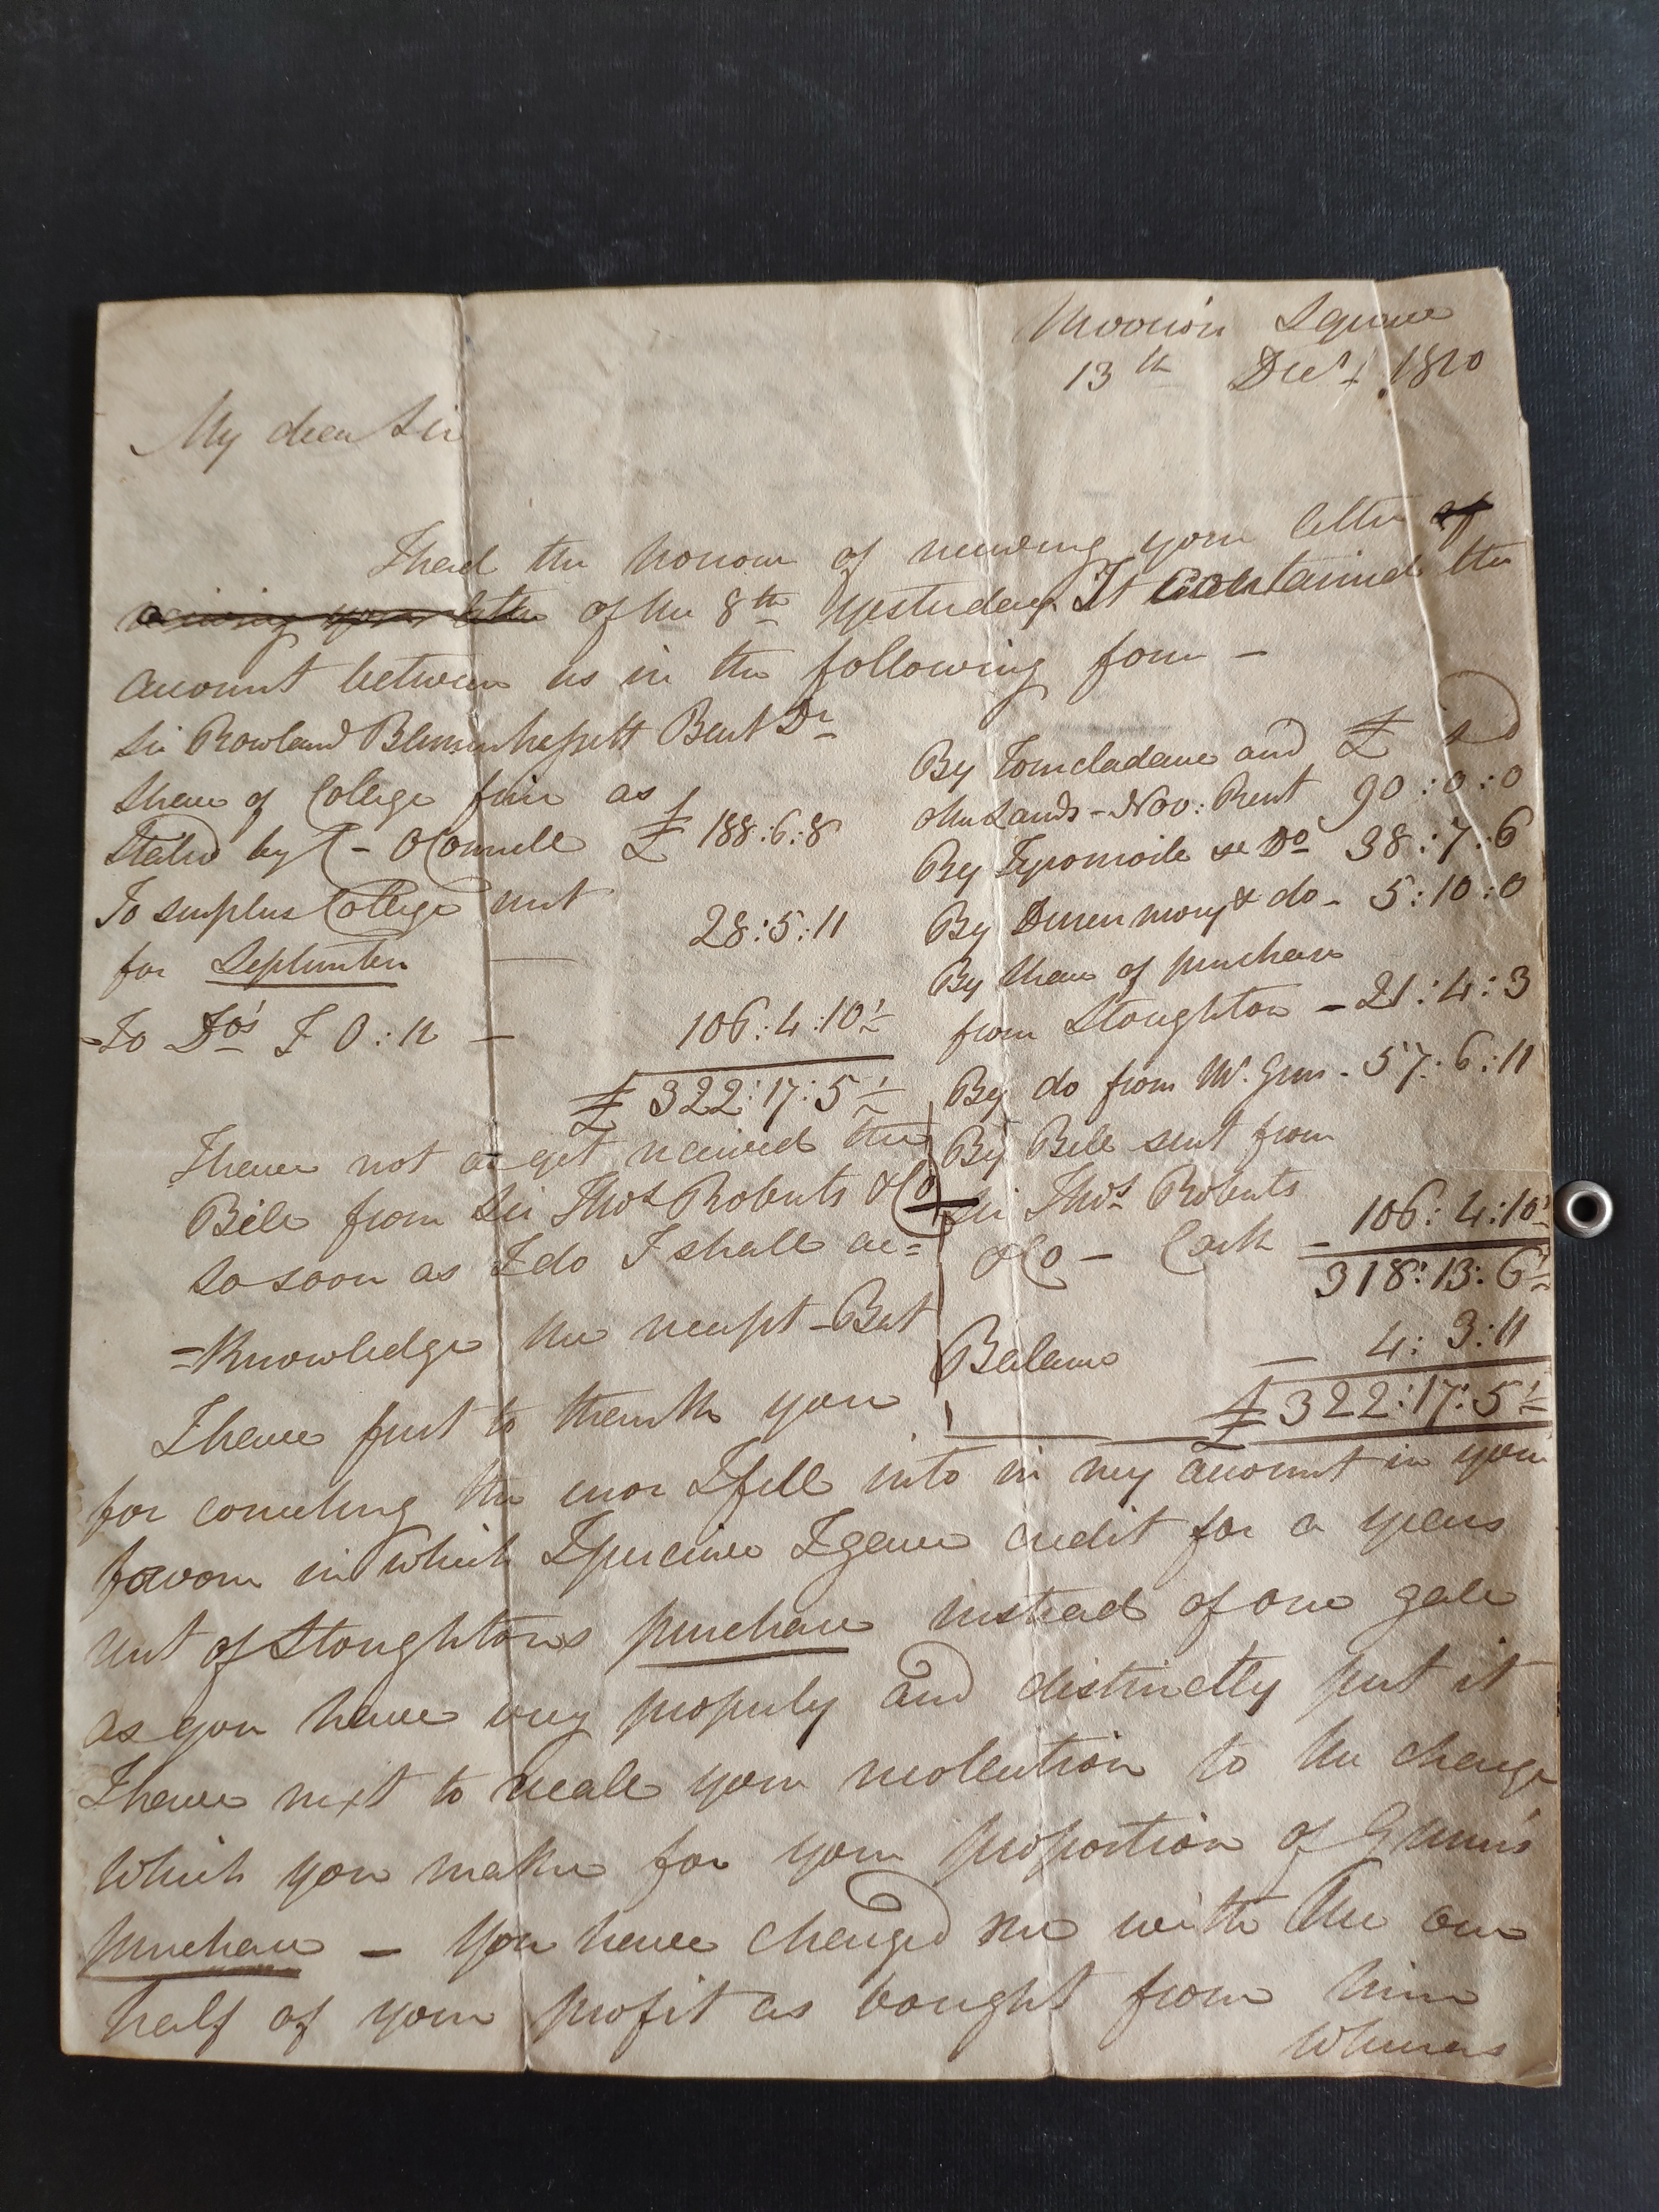 Merrion Square
13th Decr 1810
My dear Sir
I had the honour of receiving your letter of
receiving your letter of the 8th yesterday It contained the
account between us in the following form -
Sir Rowland Blennerhassett Bart Dr
Share of College fine as
Stated by C - OConnell £ 188:6:8
To surplus College rent
for September — 28:5:11
To Do's F O:n — 106:4:10½
£ 322:17:5½
By and £ s d
other Lands - Nov: Rent 90:0:0
By Do 38:7:6
By & do - 5:10:0
By Share of purchase
from Stoughton - 21:4:3
By do from Mr. Gun - 57:6:11
By Bill sent from
Sir Thos Roberts
& Co - Cork - 106:4:10½
318:13:6½
Balance — 4:3:11
£ 322:17:5½
I have not as yet received the
Bill from Sir Thos Roberts & Co
so soon as I do I shall ac=
=knowledge the receipt - But
I have first to thank you
for correcting the error I fell into in my account in your
favour in which I perceive I gave credit for a years
rent of Stoughtons purchase instead of one gale
as you have very properly and distinctly put it
I have next to recall your recollection to the charge
which you make for your proportion of Gunn's
purchase — You have charged me with the one
half of your profit as bought from him
whereas